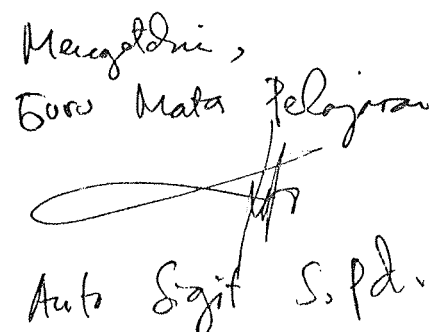 Mengetahui,
Guru Mata Pelajaran
Anto Sigit S.Pd.